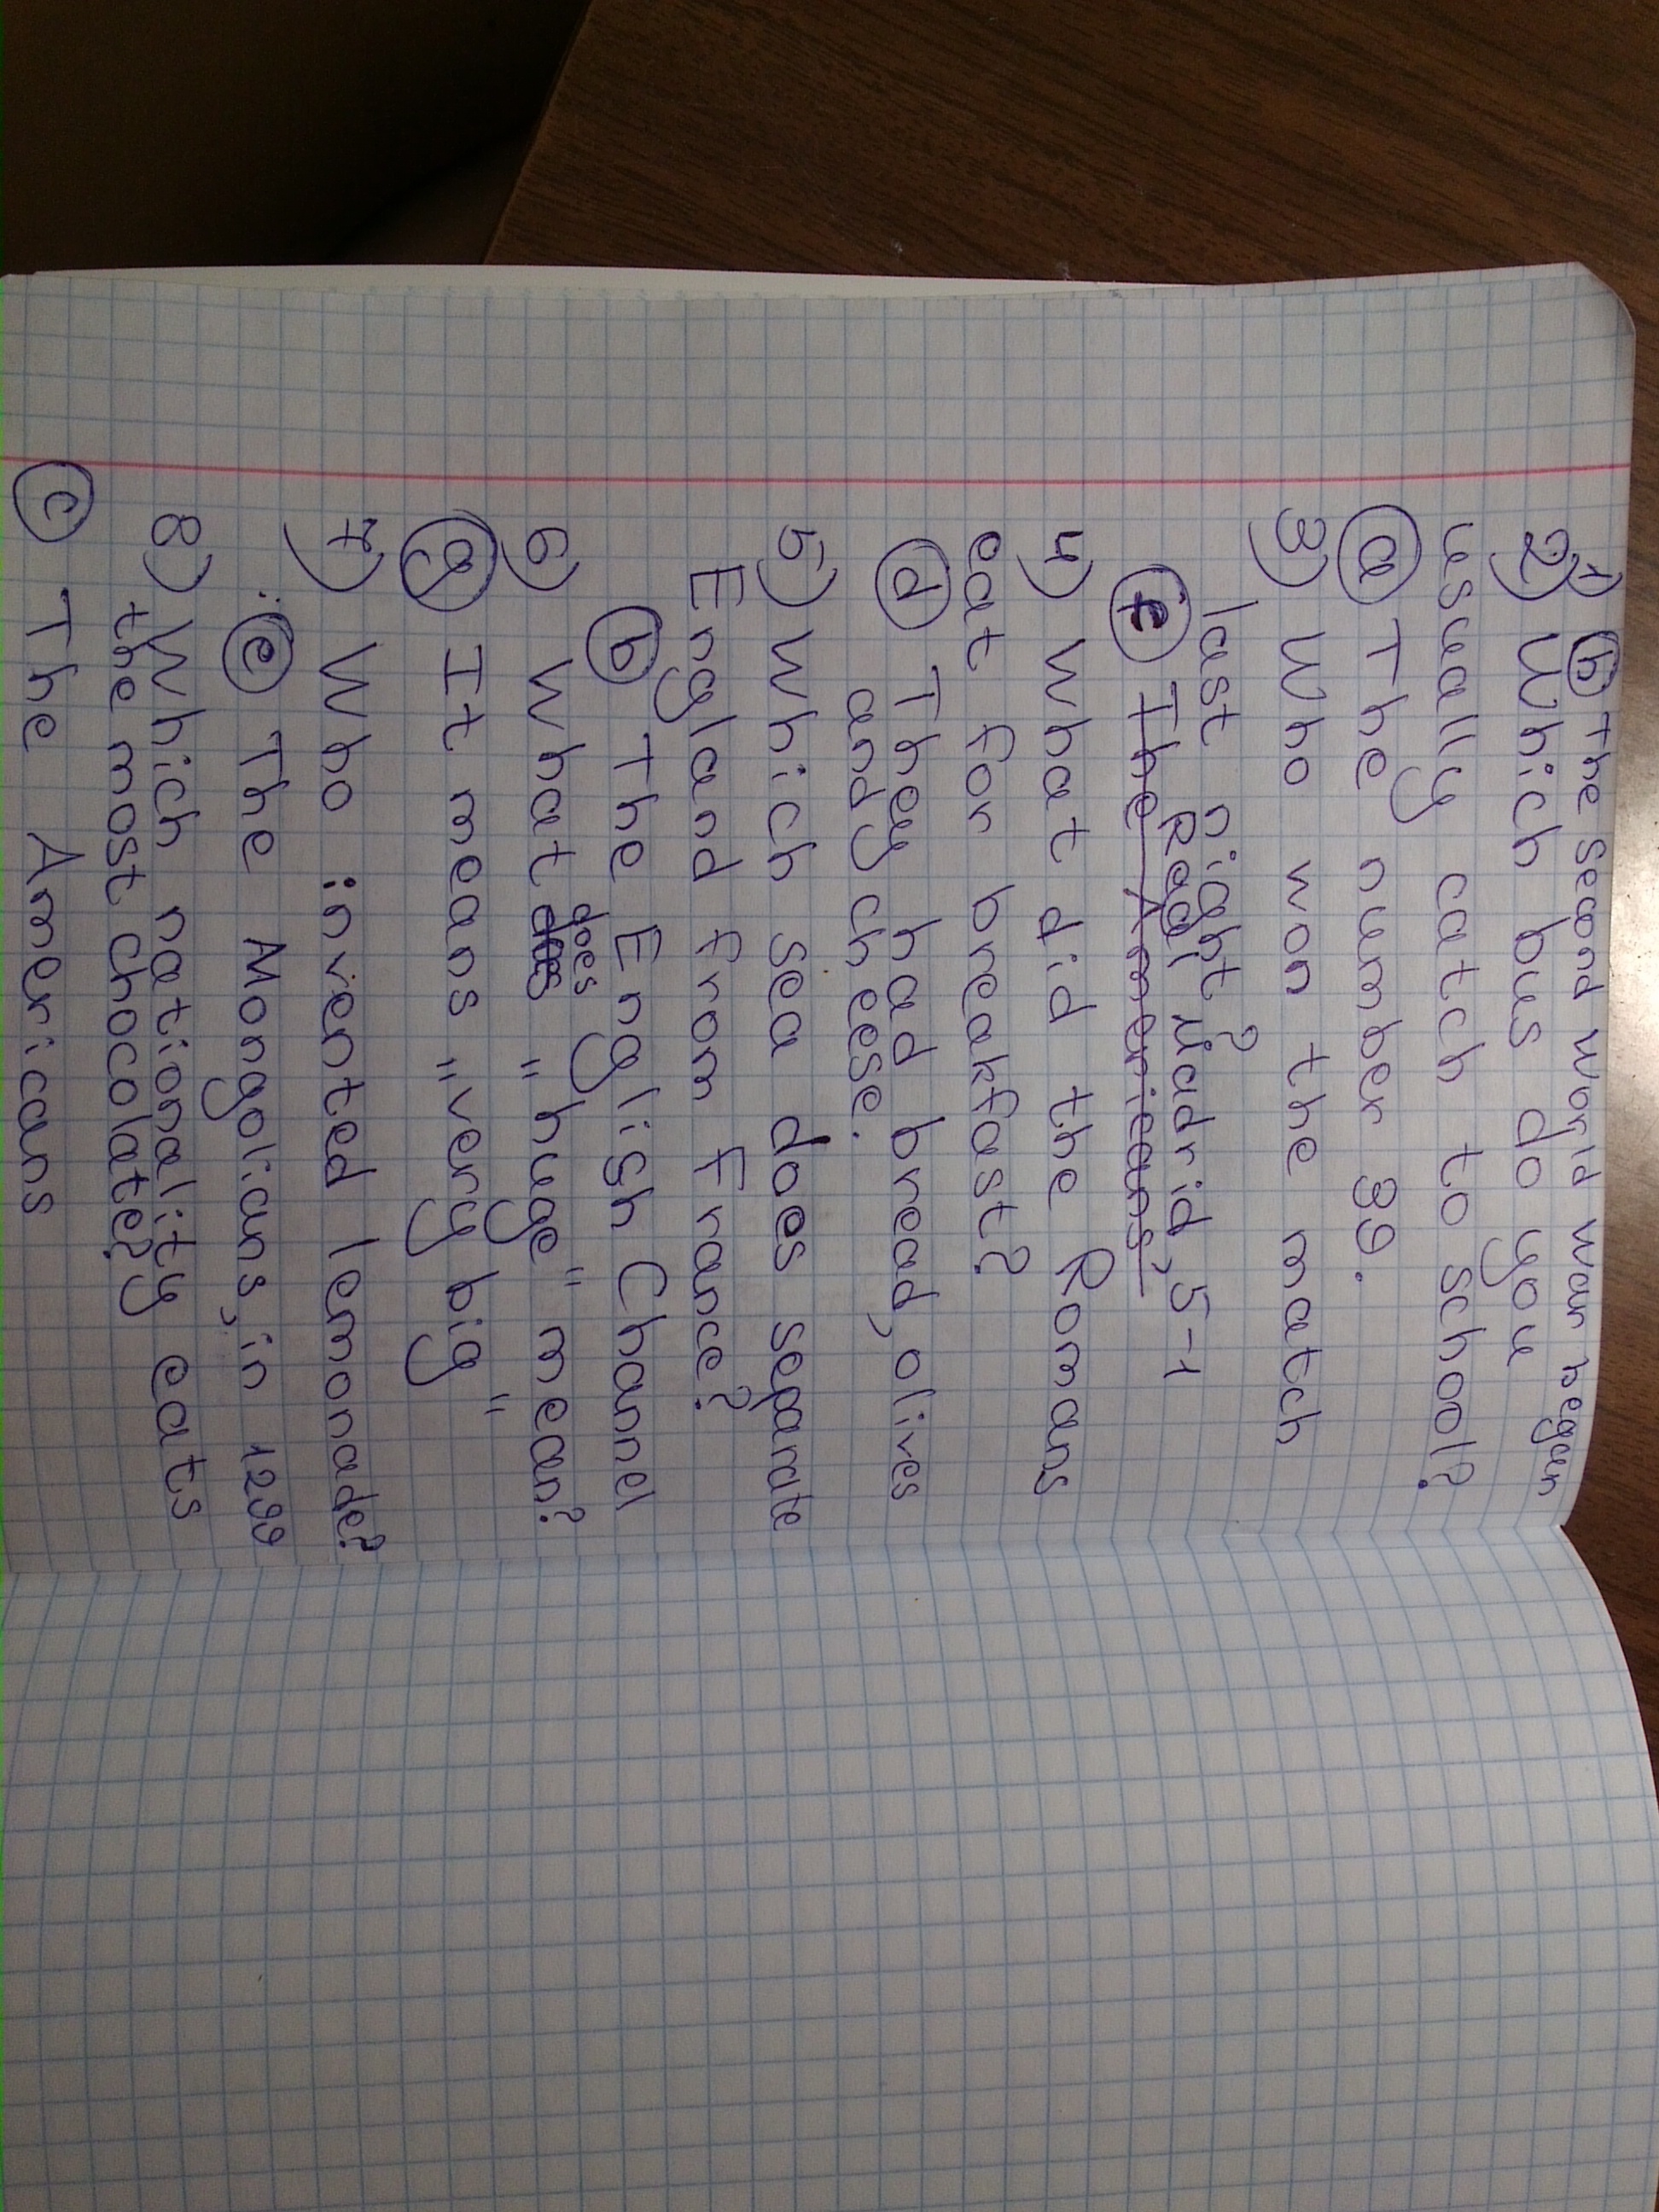 1) h The second world war began
2) Which bus do you
usually catch to school?
a The number 39.
3) Who won the match
last night?
Real Madrid, 5-1
f The Americans,
4) What did the Romans
eat for breakfast?
d They had bread, olives
and cheese.
5) Which sea does separate
England from France?
b The English Channel
does
6) What does "huge" mean?
g It means "very big"
7) Who invented lemonade?
e The Mongolians, in 1299
8) Which nationality eats
the most chocolate?
c The Americans